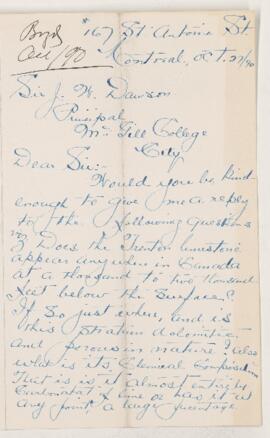 Oct/90
#167 St Antoine St.
Montreal, Oct. 27/90
Sir J. W. Dawson
Principal
McGill College
City
Dear Sir:-
Would you be kind
enough to give me a reply
to the following questions
viz Does the Trenton limestone
appear anywhere in Canada
at a thousand to two thousand
feet below the surface?
If so just where, and is
this stratum dolomitic
and porous in nature; also
what is its Chemical Composition
That is is it almost entirely
Carbonate of lime or has it at
any point a large percentage